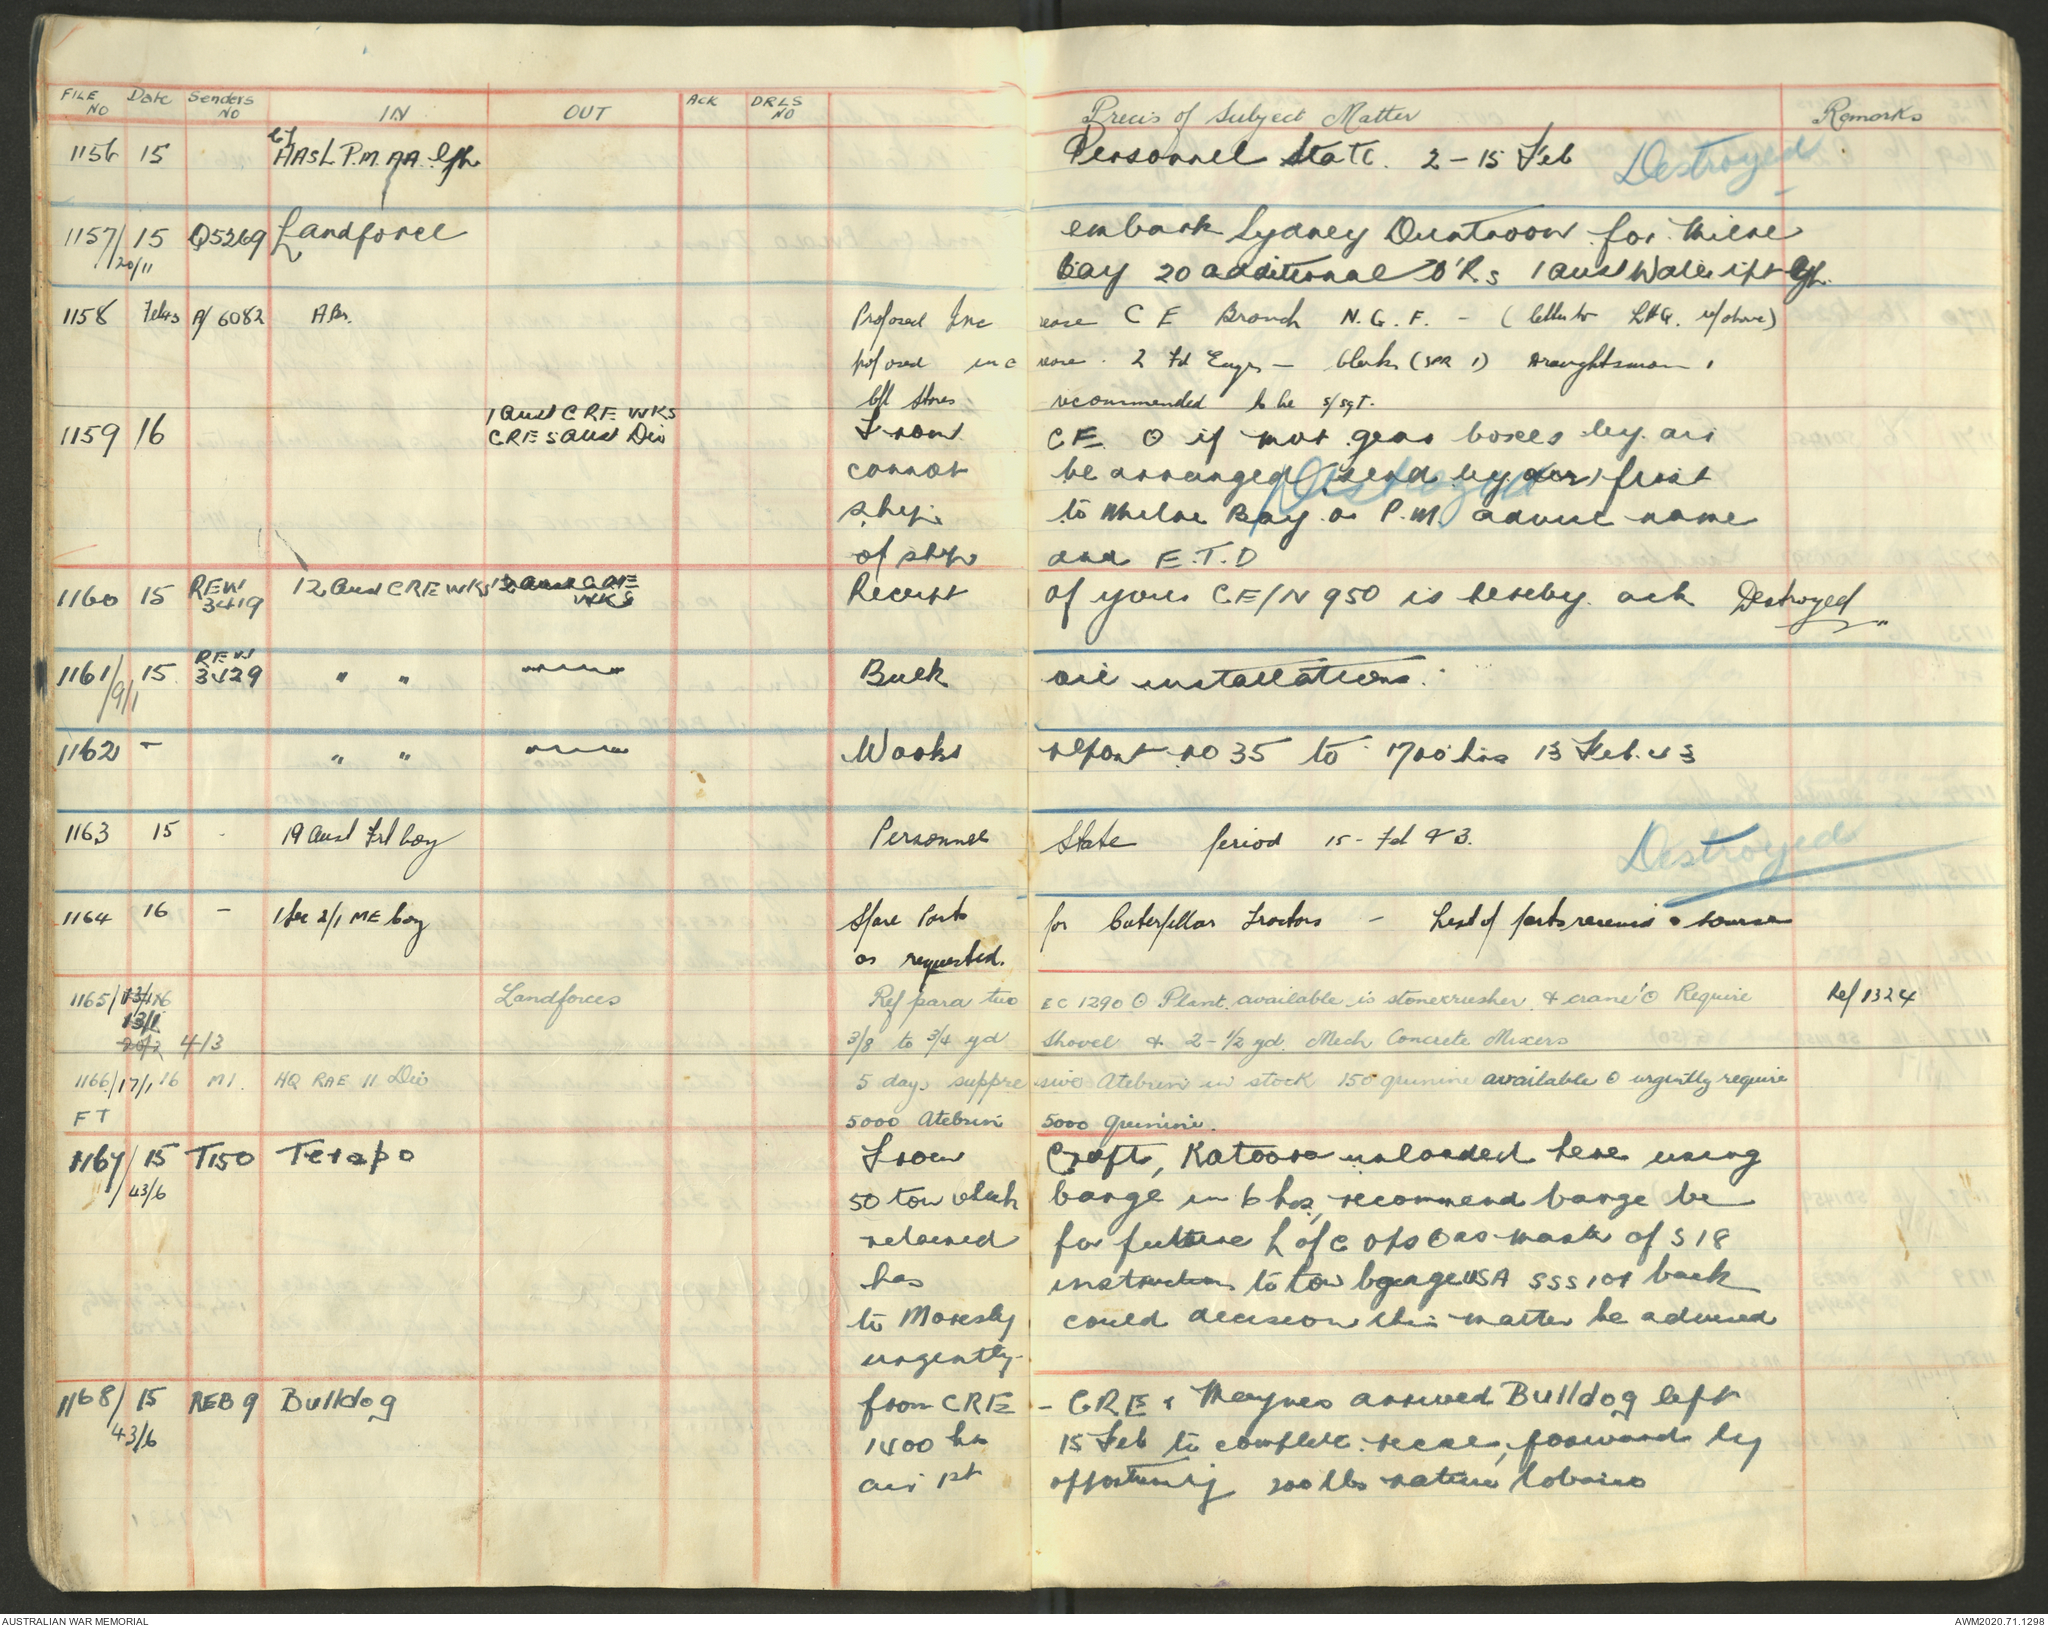 FILE NO Date Senders NO IN OUT Ack DRLS NO Precis of Subject Matter Remarks
1156 15 HAsL P.M. AA. Personnel State. 2 - 15 Feb Destroyed
1157/ 15 Q5269 Landforce embark Sydney Duntroon for Milne
20/11 bay 20 additional O'Rs 1 Aust
1158 Feb43 A/ 6082 Proposed Inc rease C E Branch N. G. F. - (letter to LHQ. r/above)
proposed inc rease. 2 Fd Engrs - Clerks (SPR 1) Draughtsman 1
Stores recommended to be S/Sgt.
1159 16 1 Aust CRE WKS CRE 5 Aust Div From CE O if mot gear boxes by air
cannot be arranged send by first Destroyed
ship to Milne Bay or P.M. advise name
of ship and E.T.D
1160 15 REW 3419 12 Aust CRE WKS 12 Aust CRE WKS Receipt of your CE/N 950 is hereby ack Destroyed
1161/ 15 REW 3429 " " Bulk oil installations.
9/1
1162 - " " Works report no 35 to 1700 hrs 13 Feb. 43
1163 15 - 19 Aust Fd Coy Personnel State period 15 - Fd 43. Destroyed
1164 16 - 1 Sec 2/1 ME Coy Spare Parts for Caterpillar Tractors - List of parts
as requested.
1165/ 13/1 16 Landforces Ref para two EC 1290 O Plant available is stonecrusher & crane O Require Ref 1324
13/1
20/2 4/3 3/8 to 3/4 yd Shovel & 2 - 1/2 yd. Mech Concrete Mixers
1166/17/1 16 M1. HQ RAE 11 Div 5 days suppre sive Atebrin in stock 150 quinine available O urgently require
FT 5000 Atebrin 5000 quinine.
1167/ 15 T150 Terapo From Craft, Katoora unloaded here using
43/6 50 ton which barge in 6 hrs, recommend barge be
retained for future L of C ops O as master of S 18
has instructions to tow barge USA SSS 101 back
to Moresby could decision this matter be advised
urgently.
1168/ 15 REB 9 Bulldog from CRE - CRE & Maynes arrived Bulldog left
43/6 1400 hrs 15 Feb to complete recce, forward by
air 1st opportunity 200 lbs native tobacco
AUSTRALIAN WAR MEMORIAL AWM2020.71.1298